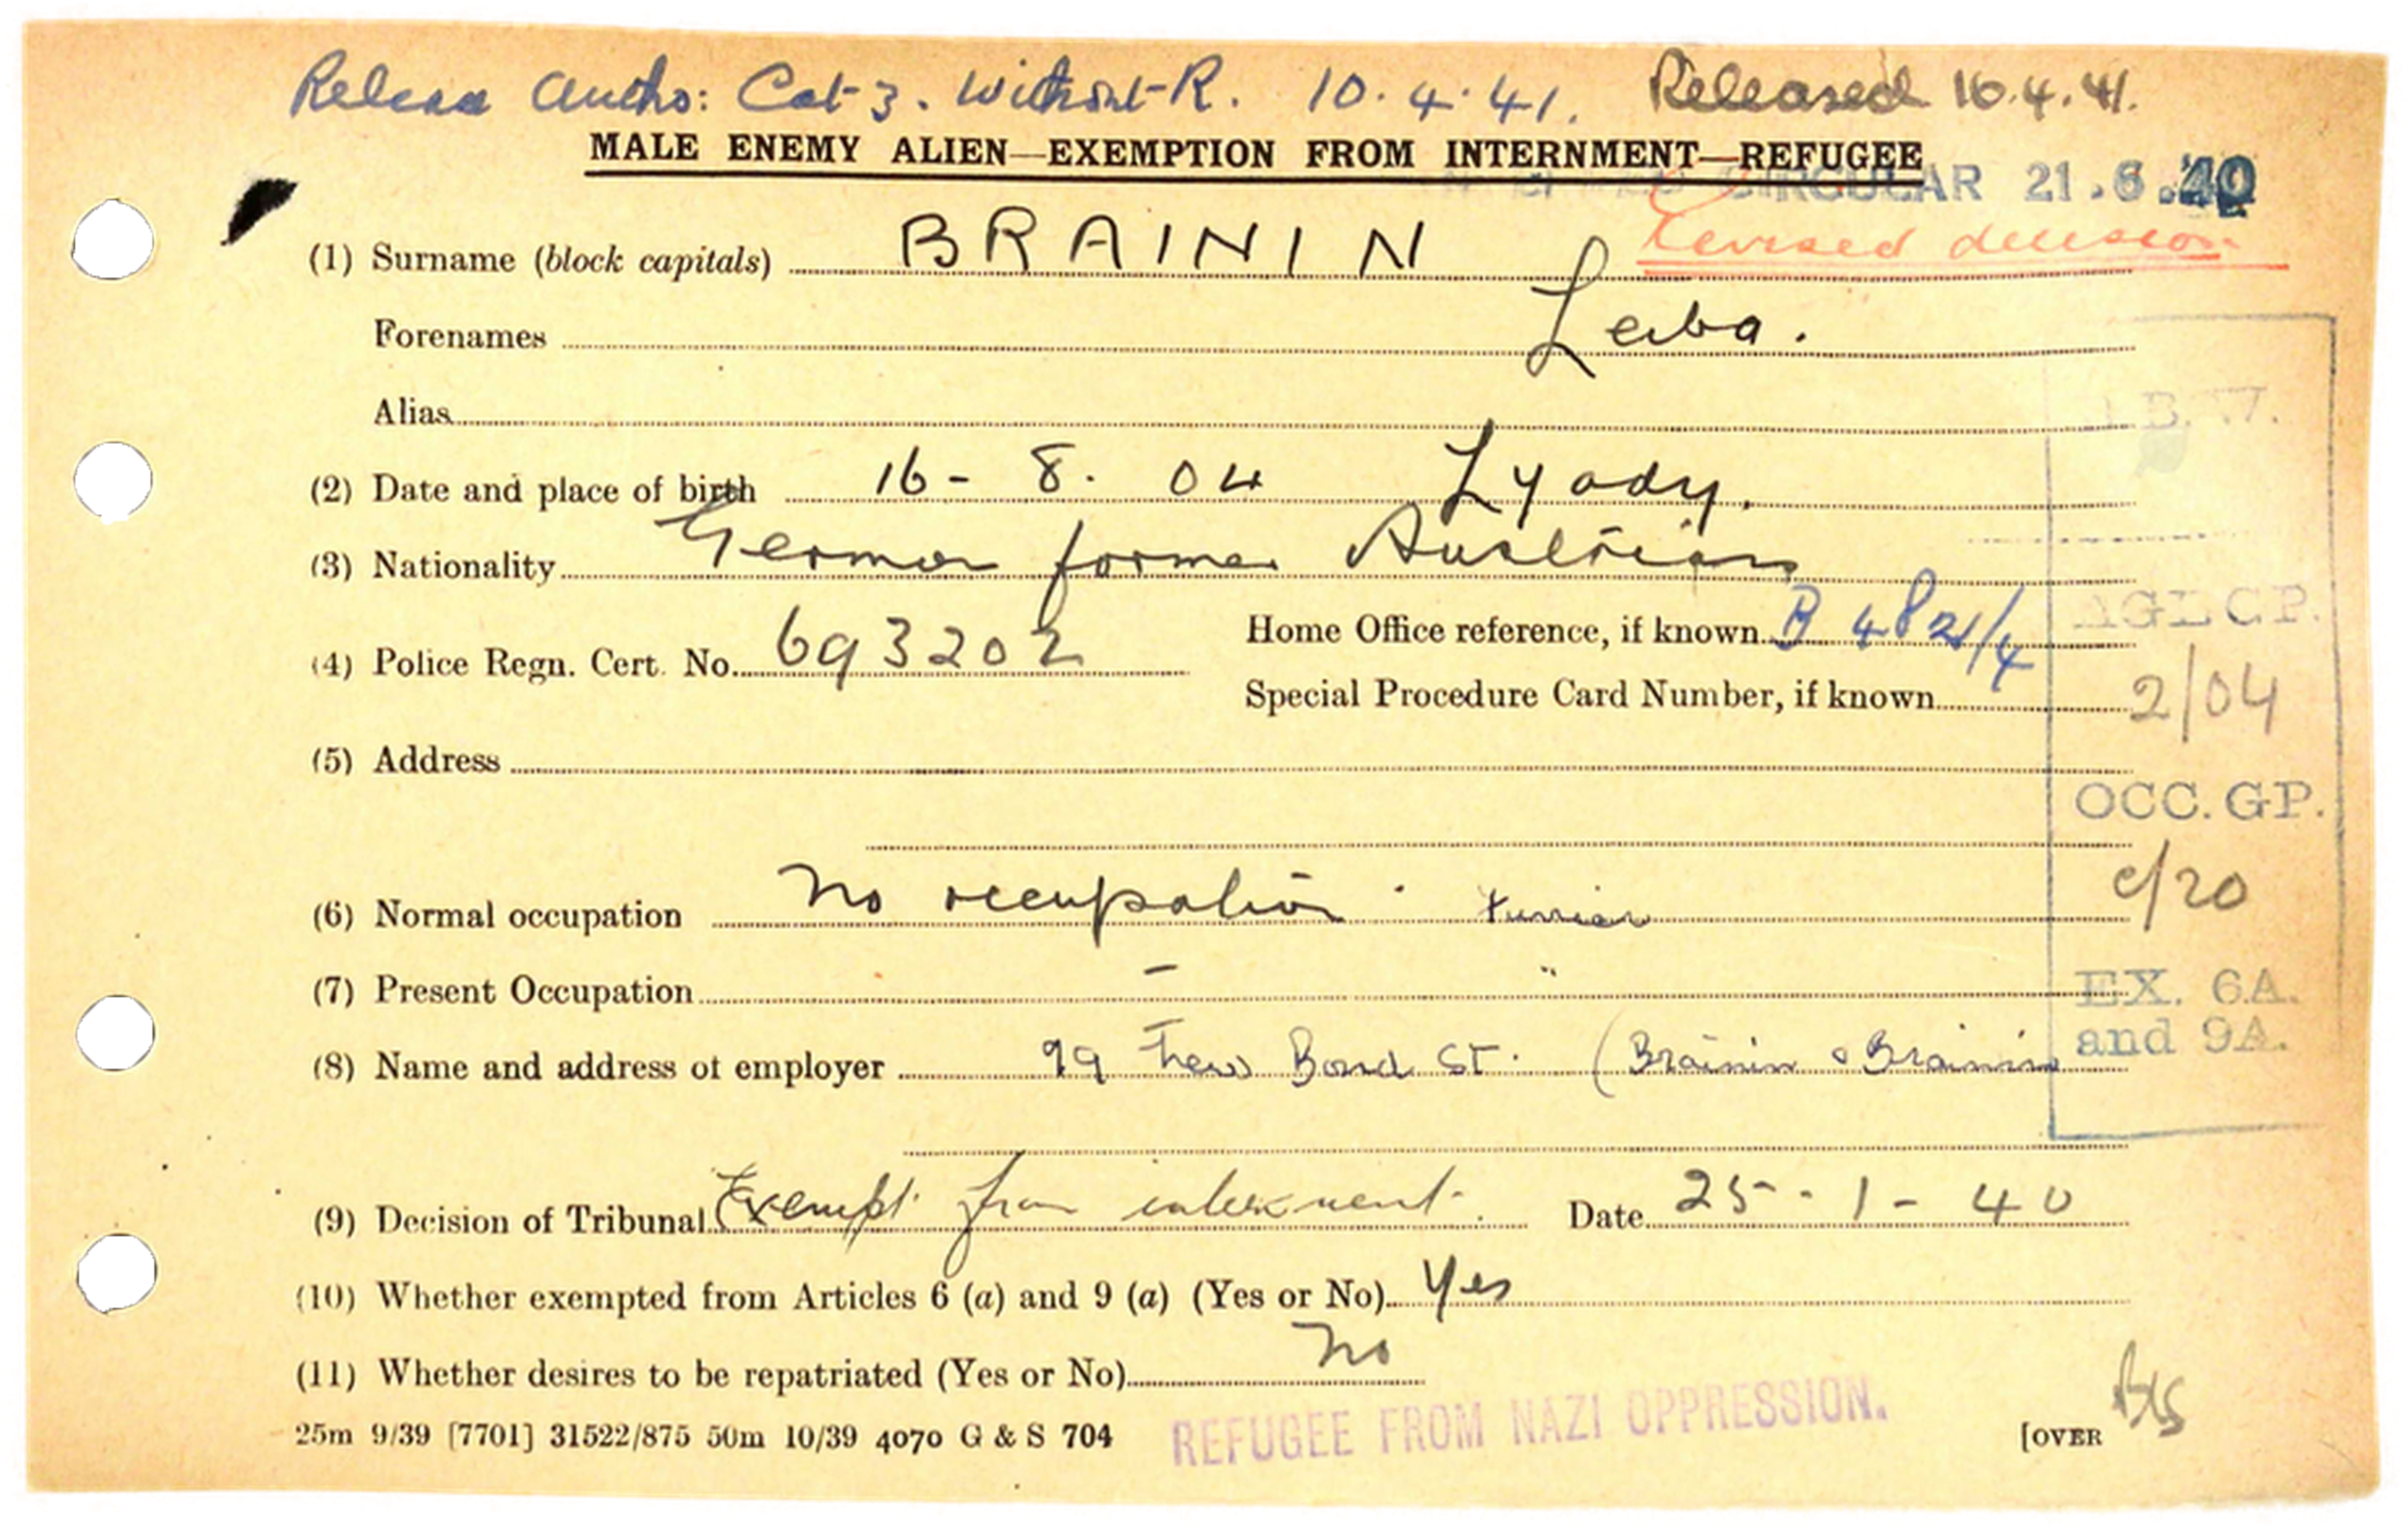 Release Autho: Cat 3. Without R. 10.4.41. Released 16.4.41.
MALE ENEMY ALIEN—EXEMPTION FROM INTERNMENT—REFUGEE
CIRCULAR 21.6.40
Revised decision
(1) Surname (block capitals) BRAININ
Forenames Leiba.
Alias
(2) Date and place of birth 16-8.04 Lyady.
(3) Nationality German former Austrian
(4) Police Regn. Cert. No. 693202
Home Office reference, if known B 4821/4
Special Procedure Card Number, if known
2/04
(5) Address
OCC. GP.
c/20
(6) Normal occupation No occupation. Furrier
(7) Present Occupation – "
EX. 6A.
and 9A.
(8) Name and address of employer 99 New Bond St. (Brainin & Brainin
(9) Decision of Tribunal Exempt from internment. Date 25-1-40
(10) Whether exempted from Articles 6 (a) and 9 (a) (Yes or No) Yes
(11) Whether desires to be repatriated (Yes or No) No
25m 9/39 [7701] 31522/875 50m 10/39 4070 G & S 704
REFUGEE FROM NAZI OPPRESSION.
[OVER